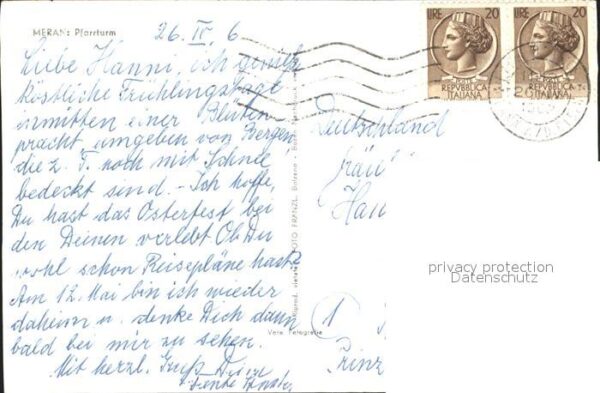 MERAN: Pfarrturm
26. IV. 6
Liebe Hanni, ich genieße
köstliche Frühlingstage
inmitten einer Blüten-
pracht, umgeben von Bergen,
die z. T. noch mit Schnee
bedeckt sind. - Ich hoffe,
Du hast das Osterfest bei
den Deinen verlebt. Ob Du
wohl schon Reisepläne hast?
Am 12. Mai bin ich wieder
daheim u. denke Dich dann
bald bei mir zu sehen.
Mit herzl. Gruß Deine
Tante
FOTO FRANZL, Bolzano
Vera Fotografia
LIRE 20
REPVBBLICA
ITALIANA
LIRE 20
REPVBBLICA
ITALIANA
Deutschland
Fräu
Han
privacy protection
Datenschutz
1
Prinz